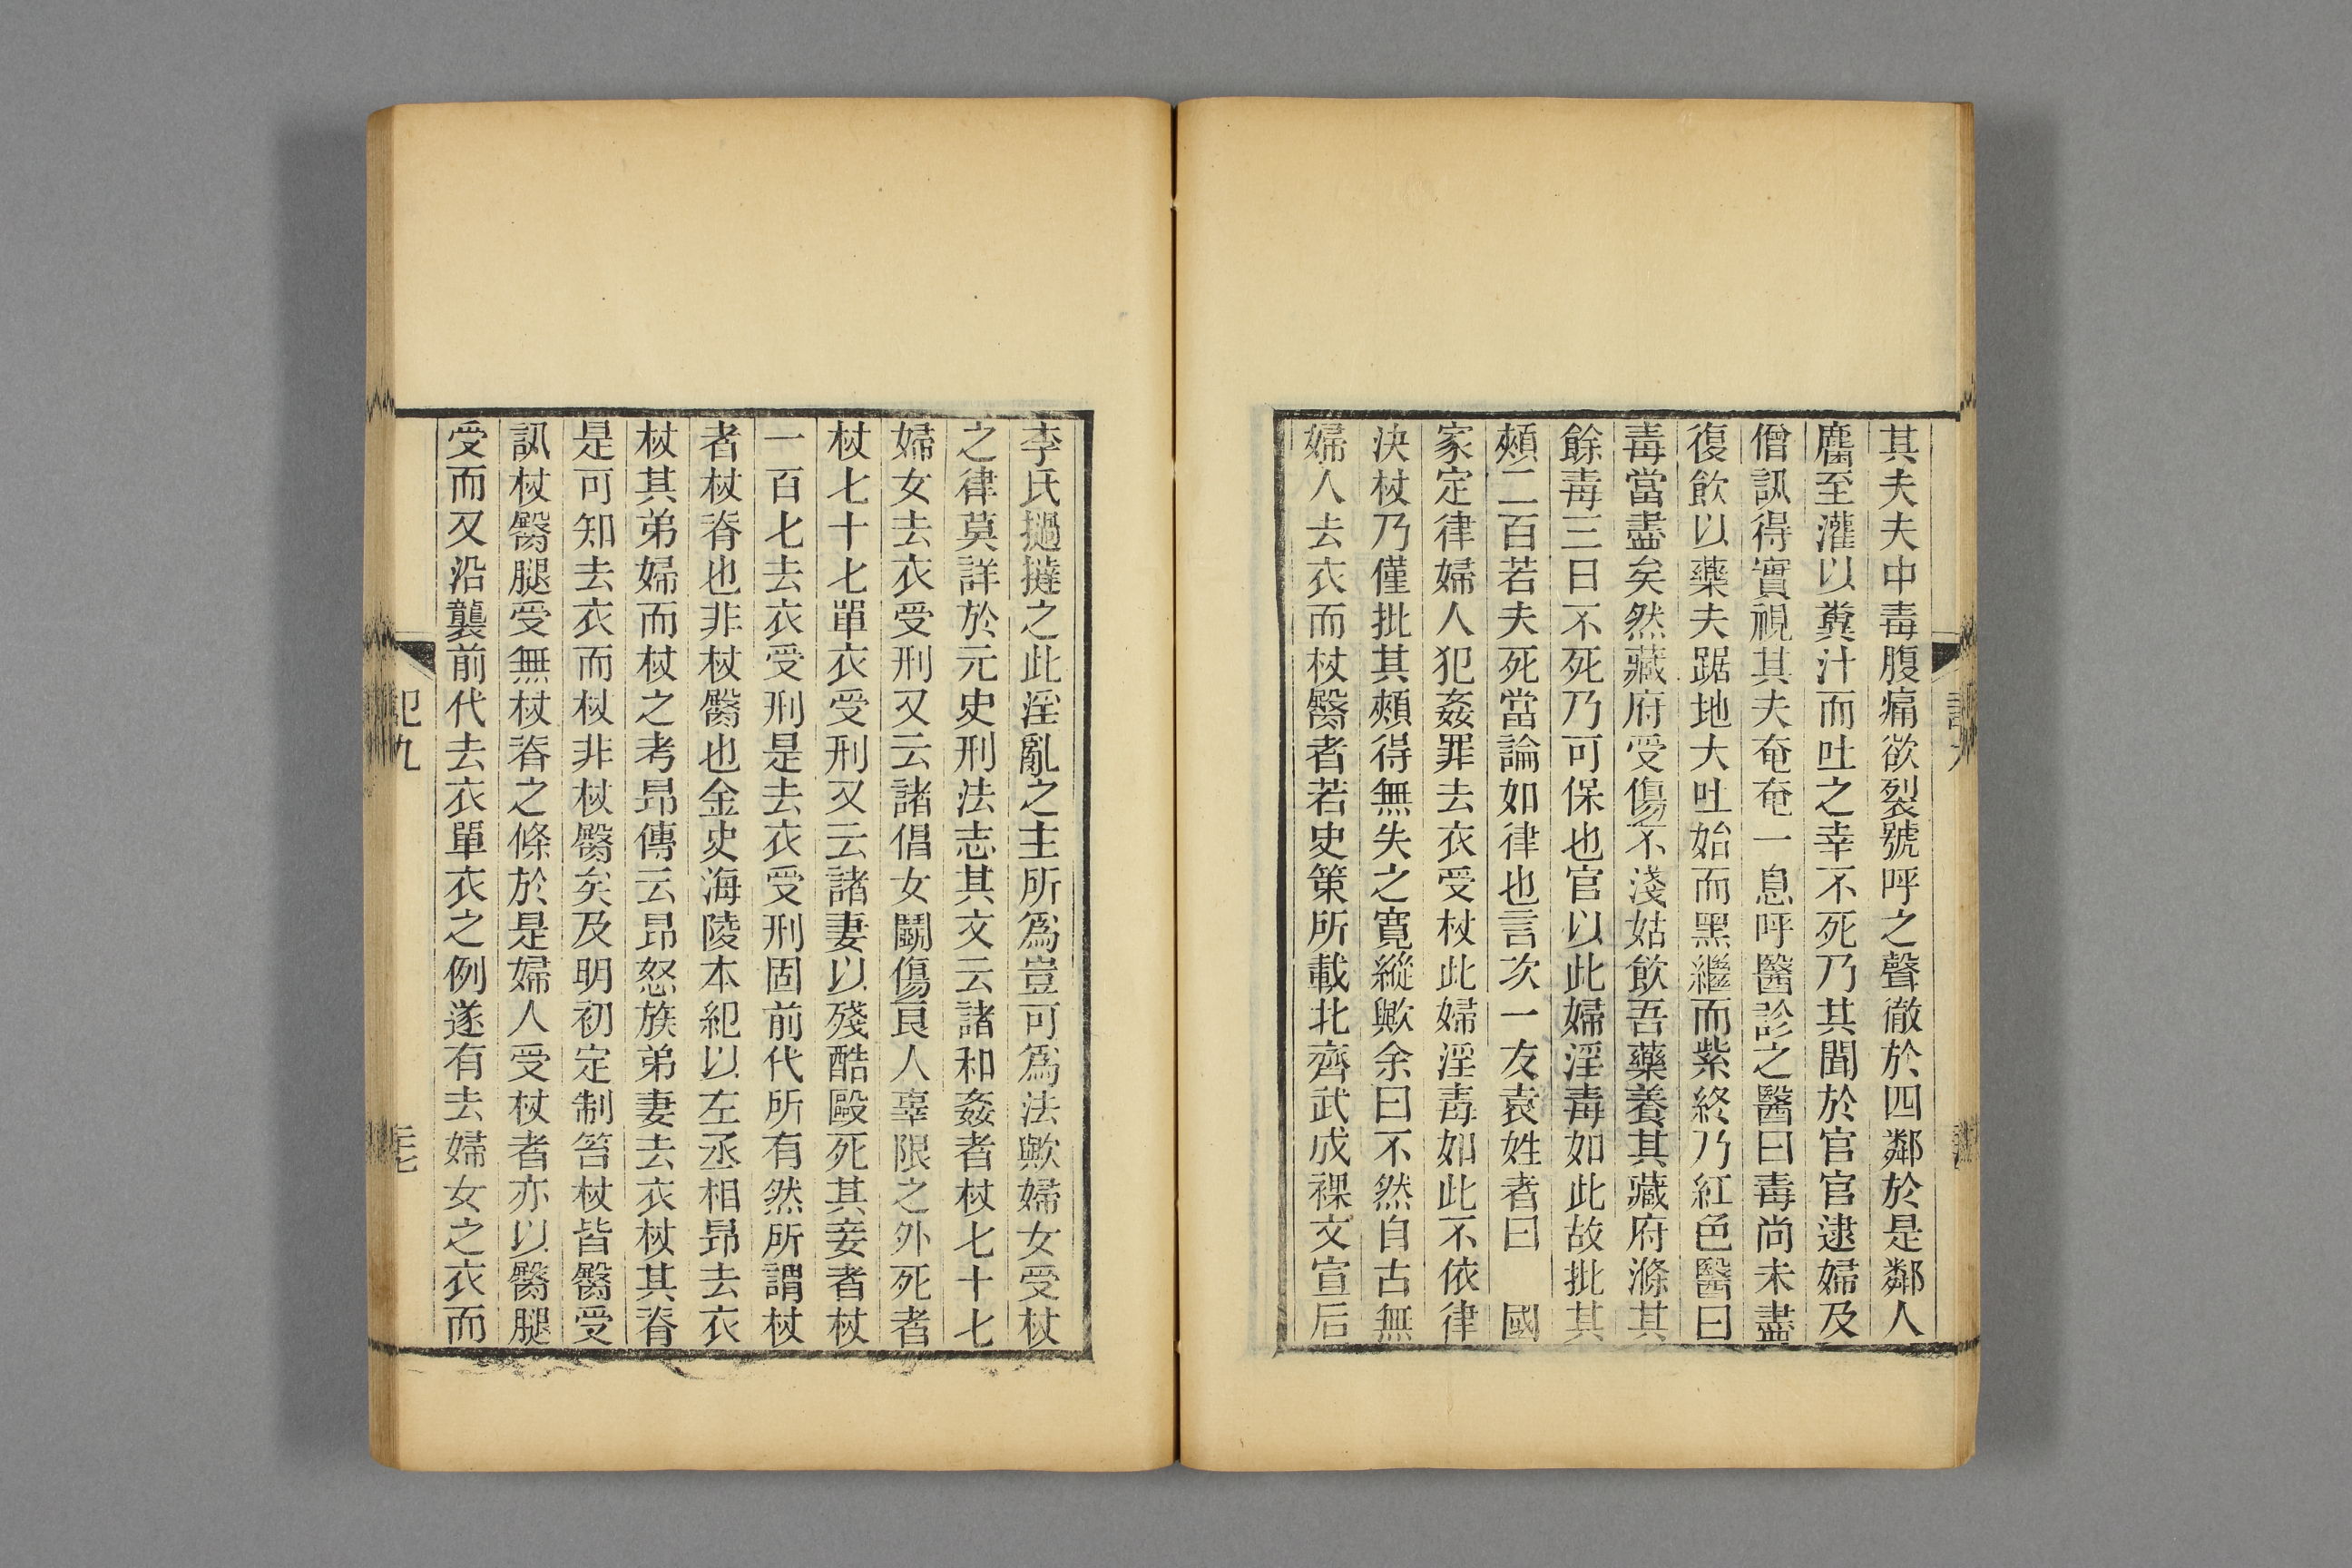 其夫夫中毒腹痛欲裂號呼之聲徹於四鄰於是鄰人
麕至灌以糞汁而吐之幸不死乃其聞於官官逮婦及
僧訊得實視其夫奄奄一息呼醫診之醫曰毒尚未盡
復飲以藥夫踞地大吐始而黑繼而紫終乃紅色醫曰
毒當盡矣然藏府受傷不淺姑飲吾藥養其藏府滌其
餘毒三日不死乃可保也官以此婦淫毒如此故批其
頰二百若夫死當論如律也言次一友袁姓者曰　國
家定律婦人犯姦罪去衣受杖此婦淫毒如此不依律
決杖乃僅批其頰得無失之寬縱歟余曰不然自古無
婦人去衣而杖臀者若史策所載北齊武成裸文宣后
李氏撾撻之此淫亂之主所爲豈可爲法歟婦女受杖
之律莫詳於元史刑法志其文云諸和姦者杖七十七
婦女去衣受刑又云諸倡女鬭傷良人辜限之外死者
杖七十七單衣受刑又云諸妻以殘酷毆死其妾者杖
一百七去衣受刑是去衣受刑固前代所有然所謂杖
者杖脊也非杖臀也金史海陵本紀以左丞相昂去衣
杖其弟婦而杖之考昂傳云昂怒族弟妻去衣杖其脊
是可知去衣而杖非杖臀矣及明初定制笞杖皆臀受
訊杖臀腿受無杖脊之條於是婦人受杖者亦以臀腿
受而又沿襲前代去衣單衣之例遂有去婦女之衣而